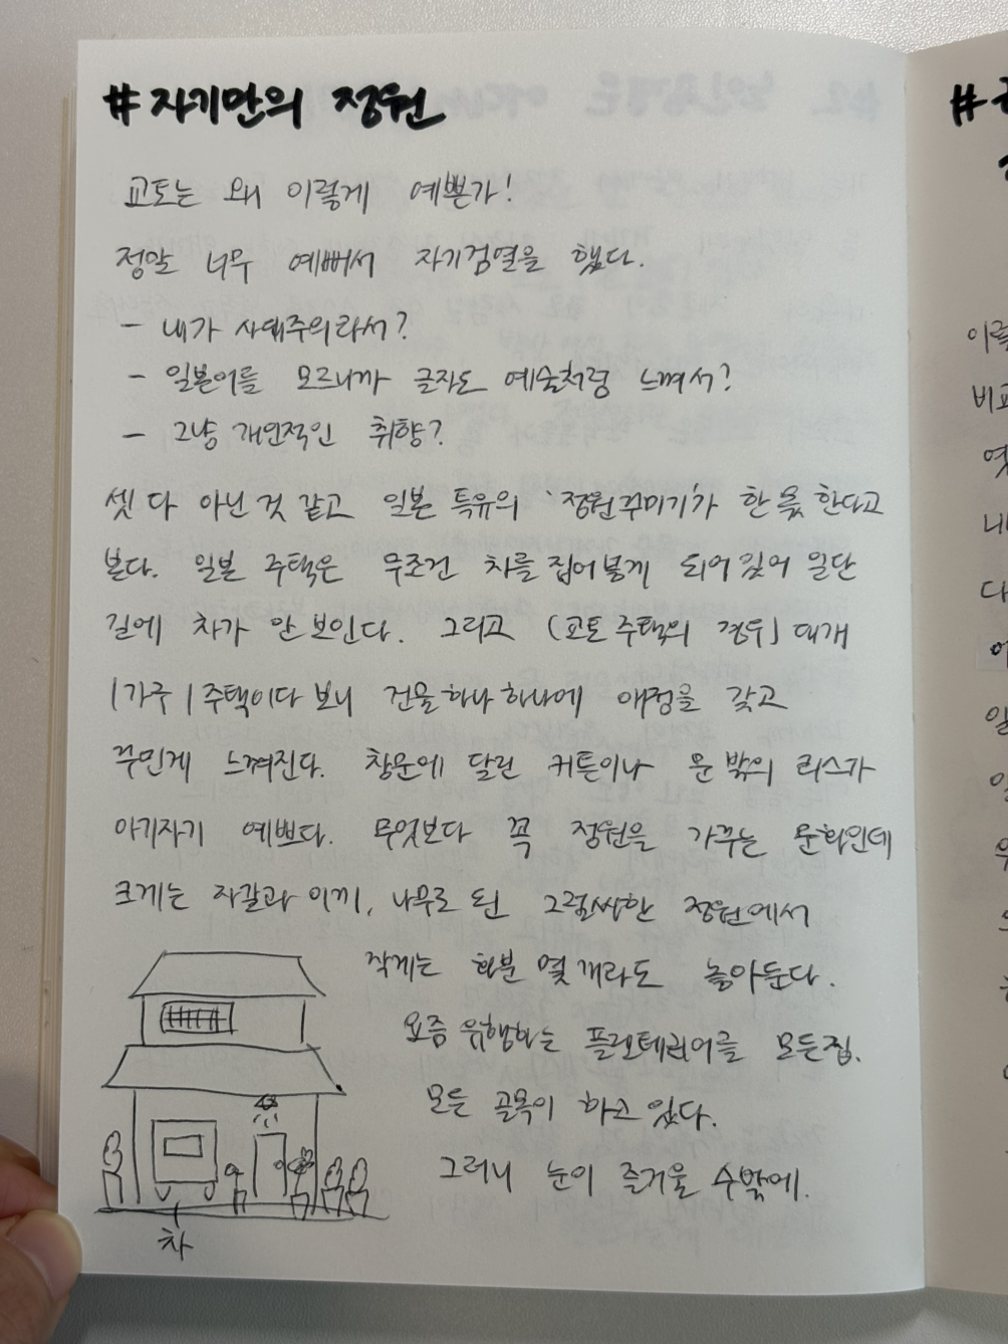 # 자기만의 정원
교토는 왜 이렇게 예쁜가!
정말 너무 예뻐서 자기검열을 했다.
- 내가 사대주의라서?
- 일본어를 모르니까 글자도 예술처럼 느껴서?
- 그냥 개인적인 취향?
셋 다 아닌 것 같고 일본 특유의 '정원꾸미기'가 한몫 한다고
본다. 일본 주택은 무조건 차를 집어넣게 되어있어 일단
길에 차가 안 보인다. 그리고 (교토 주택의 경우) 대개
1가구 1주택이다 보니 건물 하나 하나에 애정을 갖고
꾸민게 느껴진다. 창문에 달린 커튼이나 문 밖의 리스가
아기자기 예쁘다. 무엇보다 꼭 정원을 가꾸는 문화인데
크게는 자갈과 이끼, 나무로 된 그럴싸한 정원에서
작게는 화분 몇 개라도 놓아둔다.
요즘 유행하는 플랜테리어를 모든집.
모든 골목이 하고 있다.
그러니 눈이 즐거울 수밖에.
차